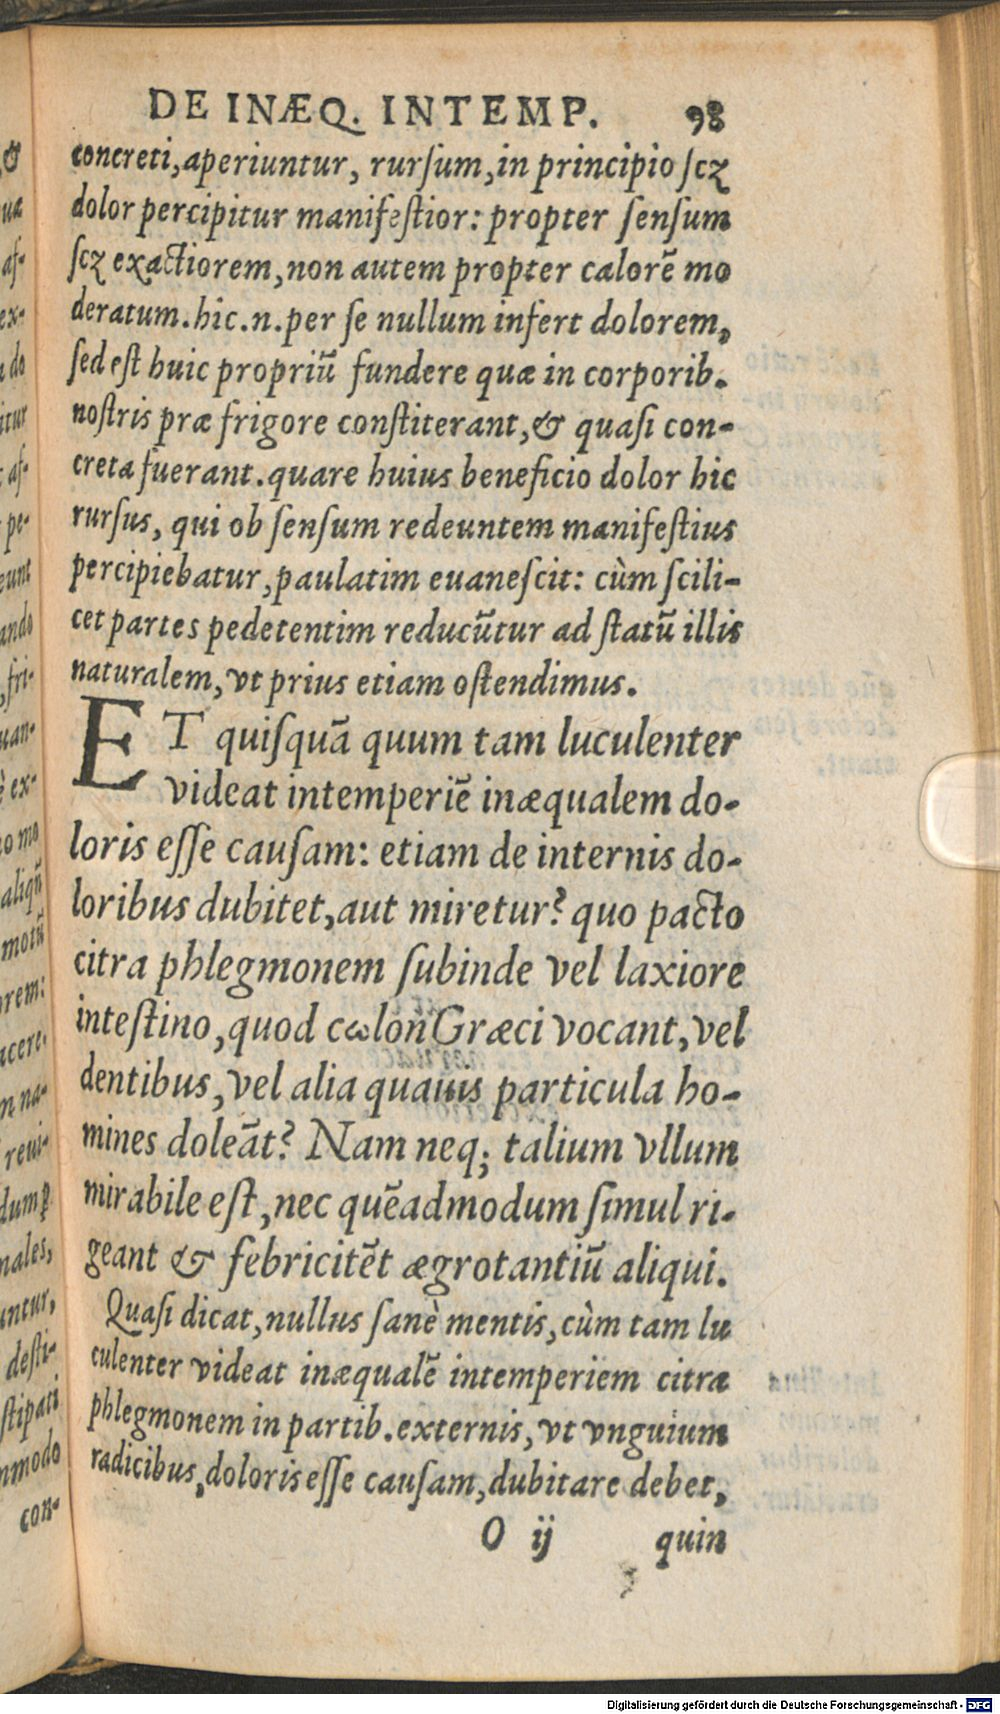 DE INÆQ. INTEMP. 98
concreti, aperiuntur, rurſum, in principio ſcꝫ
dolor percipitur manifeſtior: propter ſenſum
ſcꝫ exactiorem, non autem propter calorē mo
deratum. hic. n. per ſe nullum infert dolorem,
ſed eſt huic propriū fundere quæ in corporib.
noſtris præ frigore conſtiterant, & quaſi con-
creta fuerant. quare huius beneficio dolor hic
rurſus, qui ob ſenſum redeuntem manifeſtius
percipiebatur, paulatim euaneſcit: cùm ſcili-
cet partes pedetentim reducūtur ad ſtatū illis
naturalem, vt prius etiam oſtendimus.
ET quiſquā quum tam luculenter
videat intemperiē inæqualem do-
loris eſſe cauſam: etiam de internis do-
loribus dubitet, aut miretur? quo pacto
citra phlegmonem ſubinde vel laxiore
inteſtino, quod cωlon Græci vocant, vel
dentibus, vel alia quauis particula ho-
mines doleāt? Nam neq; talium vllum
mirabile eſt, nec quēadmodum ſimul ri-
geant & febricitēt ægrotantiū aliqui.
Quaſi dicat, nullus ſanè mentis, cùm tam lu
culenter videat inæqualē intemperiem citra
phlegmonem in partib. externis, vt vnguium
radicibus, doloris eſſe cauſam, dubitare debet,
O ij quin
Digitalisierung gefördert durch die Deutsche Forschungsgemeinschaft - DFG